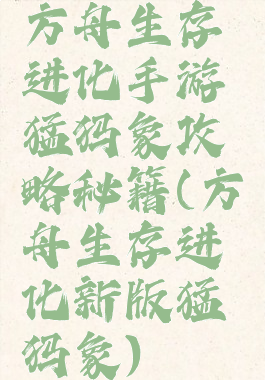 方舟生存
进化手游
猛犸象攻
略秘籍(方
舟生存进
化新版猛
犸象)